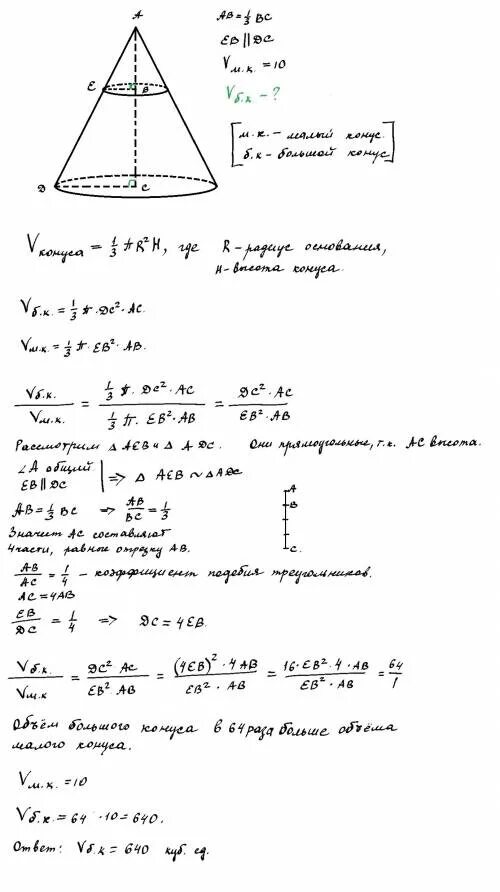 A
E
B
D
C
AB = 1/3 BC
EB || DC
Vм.к. = 10
Vб.к - ?
[м.к. - малый конус.
б.к - большой конус]
Vконуса = 1/3 πR²H, где R - радиус основания,
H - высота конуса.
Vб.к. = 1/3 π · DC² · AC.
Vм.к. = 1/3 π · EB² · AB.
Vб.к. / Vм.к. = (1/3 π · DC² · AC) / (1/3 π · EB² · AB) = (DC² · AC) / (EB² · AB)
Рассмотрим △ AEB и △ ADC. Они прямоугольные, т.к. AC высота.
∠A общий
EB || DC | => △ AEB ~ △ ADC
AB = 1/3 BC => AB/BC = 1/3
Значит AC составляют
4 части, равные отрезку AB.
A
B
C.
AB/AC = 1/4 - коэффициент подобия треугольников.
AC = 4AB
EB/DC = 1/4 => DC = 4EB.
Vб.к. / Vм.к = (DC² AC) / (EB² AB) = ((4EB)² · 4AB) / (EB² · AB) = (16 · EB² · 4 · AB) / (EB² · AB) = 64/1
Объём большого конуса в 64 раза больше объёма
малого конуса.
Vм.к. = 10
Vб.к. = 64 · 10 = 640.
Ответ: Vб.к = 640 куб. ед.